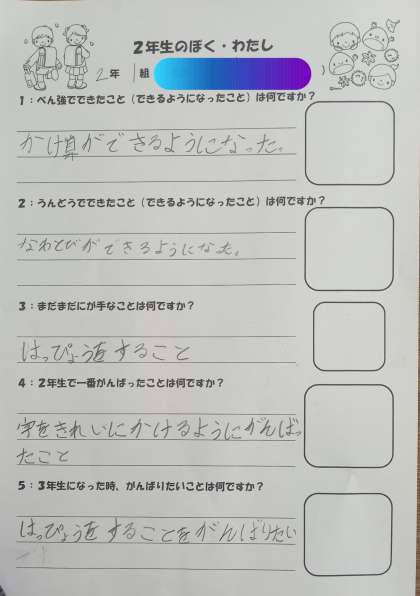 2年生のぼく・わたし
2年 1組 )
1：べん強でできたこと（できるようになったこと）は何ですか？
かけ算ができるようになった。
2：うんどうでできたこと（できるようになったこと）は何ですか？
なわとびができるようになった。
3：まだまだにが手なことは何ですか？
はっぴょうをすること
4：2年生で一番がんばったことは何ですか？
字をきれいにかけるようにがんばっ
たこと
5：3年生になった時、がんばりたいことは何ですか？
はっぴょうをすることをがんばりたい